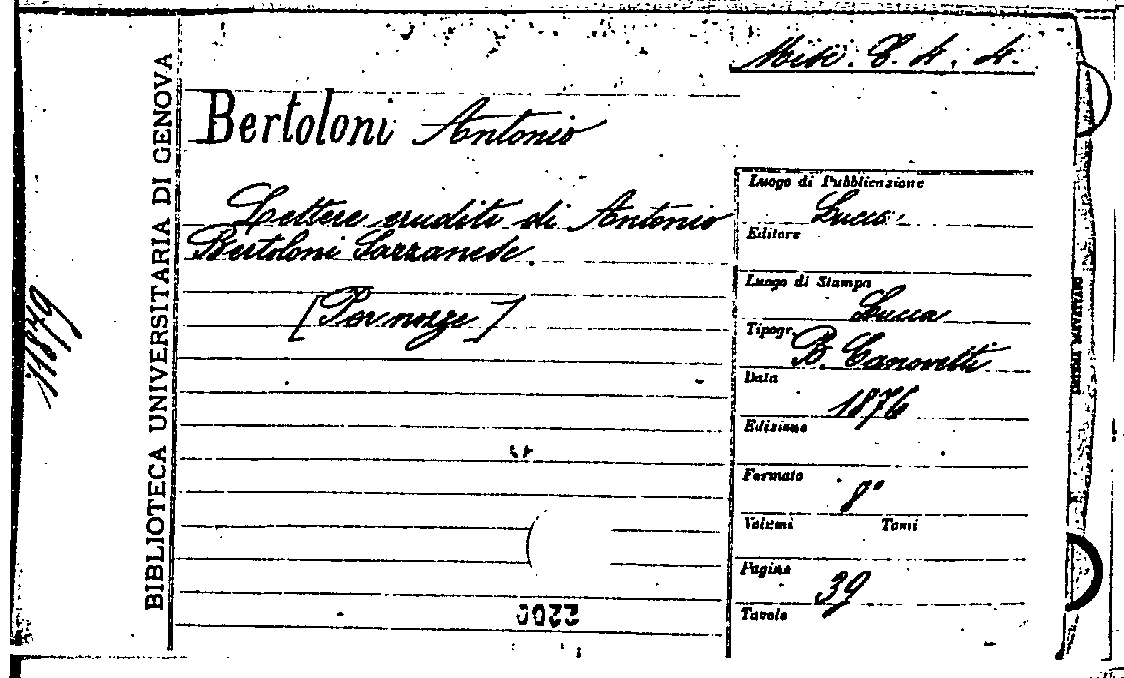 Misc. C. 4. 4.
BIBLIOTECA UNIVERSITARIA DI GENOVA
Bertoloni Antonio
Lettere erudite di Antonio
Bertoloni Sarzanese.
[Per nozze]
Luogo di Pubblicazione
Lucca
Editore
Luogo di Stampa
Lucca
Tipogr. B. Canovetti
Data
1876
Edizione
Formato
8°
Volumi Tomi
Pagine
39
Tavole
11849